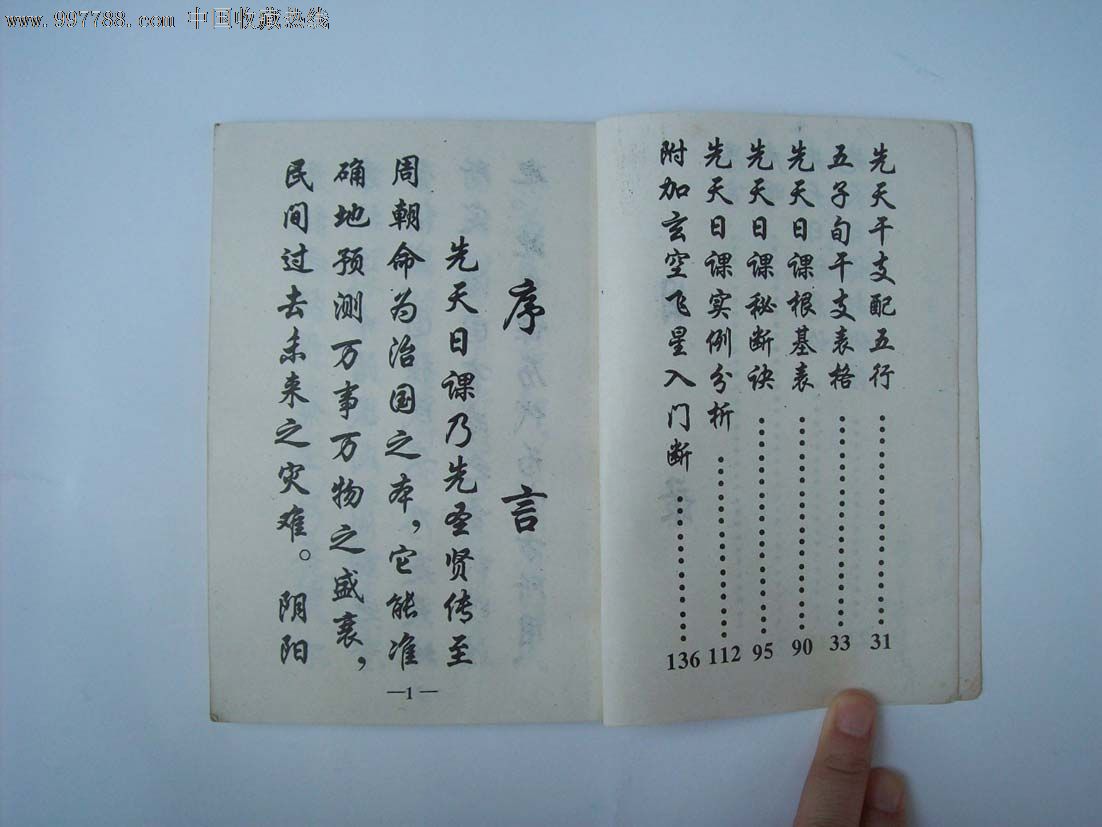 www.997788.com 中国收藏热线
先天干支配五行 31
五子旬干支表格 33
先天日课根基表 90
先天日课秘断诀 95
先天日课实例分析 112
附加玄空飞星入门断 136
序言
先天日课乃先圣贤传至
周朝命为治国之本，它能准
确地预测万事万物之盛衰，
民间过去未来之灾难。阴阳
—1—